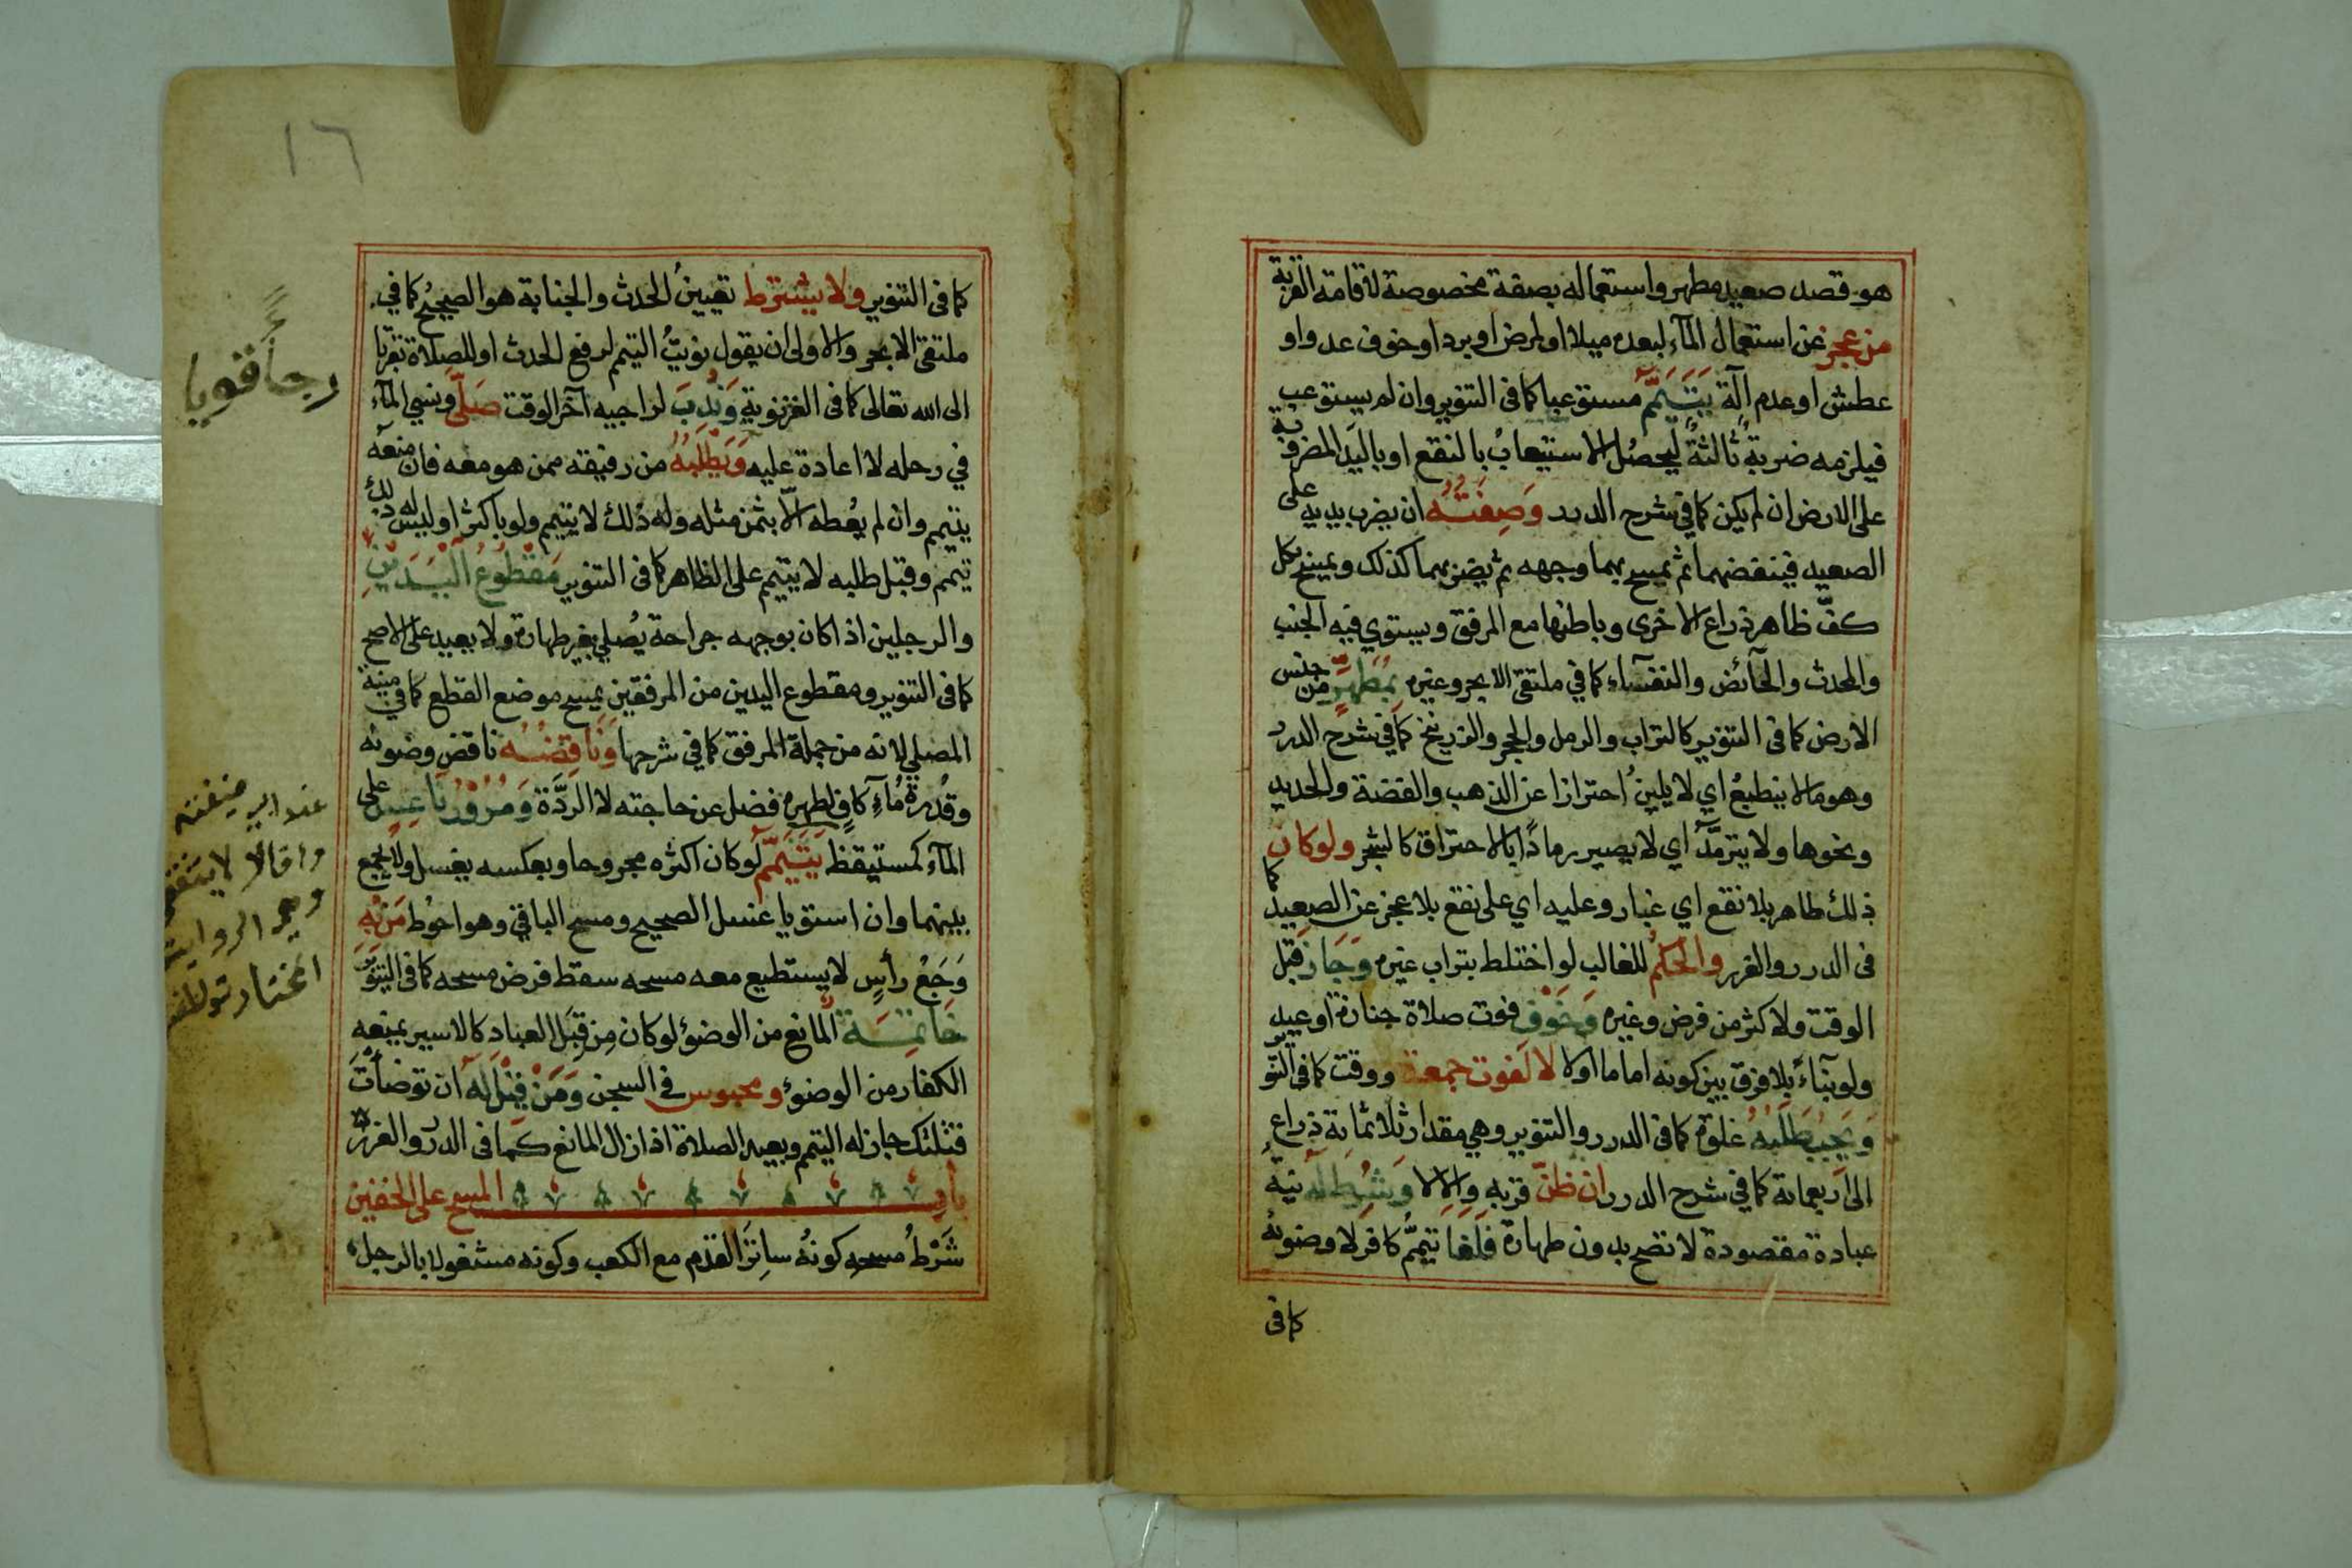 هو قصد صعيد مطهر واستعماله بصفة مخصوصة لاقامة القربة
من عجز عن استعمال المآء لبعده ميلا او لمرض او برد او خوف عدو او
عطش او عدم آلة يتيمم مستوعبا كما فى التنوير وان لم يستوعب
فيلزمه ضربة ثالثة ليحصل الاستيعاب بالنقع او باليد المضروبة
على الارض ان لم يكن كما في شرح الدرر وصفته ان يضرب بيديه على
الصعيد فينفضهما ثم يمسح بهما وجهه ثم يضربهما كذلك ويمسح بكل
كف ظاهر ذراع الاخرى وباطنها مع المرفق ويستوي فيه الجنب
والمحدث والحآئض والنفسآء كما في ملتقى الابحر وغيره بمطهر من جنس
الارض كما فى التنوير كالتراب والرمل والحجر والزرنيخ كما في شرح الدرر
وهو مالا ينطبع اي لا يلين احترازا عن الذهب والفضة والحديد
ونحوها ولا يترمد اي لا يصير رمادا بالاحتراق كالشجر ولو كان
ذلك طاهر بلا نقع اي غبار وعليه اي على نقع بلا عجز عن الصعيد كما
فى الدرر والغرر والحكم للغالب لو اختلط بتراب غيره وجاز قبل
الوقت ولاكثر من فرض وغيره وخوف فوت صلاة جنازة او عيد
ولو بنآء بلا فرق بين كونه اماما اولا لا لفوت جمعة ووقت كما فى التنوير
ويجب طلبه غلوة كما فى الدرر والتنوير وهي مقدار ثلاثمائة ذراع
الى اربعمائة كما في شرح الدرر ان ظن قربه والا لا ويشرط له نية
عبادة مقصودة لا تصح بدون طهارة فلغا تيمم كافر لا وضوئه
كما فى
١٦
كما فى التنوير ولا يشترط تعيين الحدث والجنابة هو الصحيح كما في
ملتقى الابحر والاولى ان يقول نويت التيمم لرفع الحدث او للصلاة تقربا
الى الله تعالى كما فى الغزنوية وندب لراجيه آخر الوقت صلى ونسي المآء
في رحله لا اعادة عليه ويطلبه من رفيقه ممن هو معه فان منعه
يتيمم وان لم يعطه الا بثمن مثله وله ذلك لا يتيمم ولو باكثر او ليس له ذلك
تيمم وقبل طلبه لا يتيمم على الظاهر كما فى التنوير مقطوع اليدين
والرجلين اذا كان بوجهه جراحة يصلي بغير طهارة ولا يعيد على الاصح
كما فى التنوير ومقطوع اليدين من المرفقين يمسح موضع القطع كما في منية
المصلي لانه من جملة المرفق كما في شرحها وناقضه ناقض وضوئه
وقدرة مآء كاف لطهره فضل عن حاجته لا الردة ومرور ناعس على
المآء كمستيقظ يتيمم لو كان اكثره مجروحا وبعكسه يغسل ولا يجمع
بينهما وان استويا غسل الصحيح ومسح الباقي وهو احوط من به
وجع رأس لا يستطيع معه مسحه سقط فرض مسحه كما فى التنوير
خاتمة المانع من الوضوء لو كان من قبل العباد كالاسير يمنعه
الكفار من الوضوء ومحبوس في السجن ومن قيل له ان توضأت
قتلتك جاز له التيمم ويعيد الصلاة اذا زال المانع كما فى الدرر والغرر
باب المسح على الخفين
شرط مسحه كونه ساتر القدم مع الكعب وكونه مشغولا بالرجل
رجآً قويا
عند ابي حنيفة
وقالا لا ينتقض
وهو الرواية
المختار